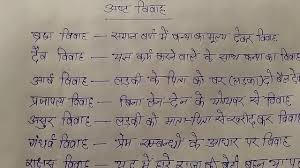 अष्ट विवाह
ब्रह्म विवाह - समान वर्ग में कन्या का मूल्य देकर विवाह
दैव विवाह - यज्ञ कर्म करने वाले के साथ कन्या का विवाह
आर्ष विवाह - लड़की के पिता को वर (लड़का) दो बैल देकर
प्रजापत्य विवाह - बिना लेन-देन के योग्य वर से विवाह
असुर विवाह - लड़की को माता-पिता से खरीद कर विवाह
गंधर्व विवाह - प्रेम सम्बन्धों के आधार पर विवाह
राक्षस विवाह - में हारे राजा की